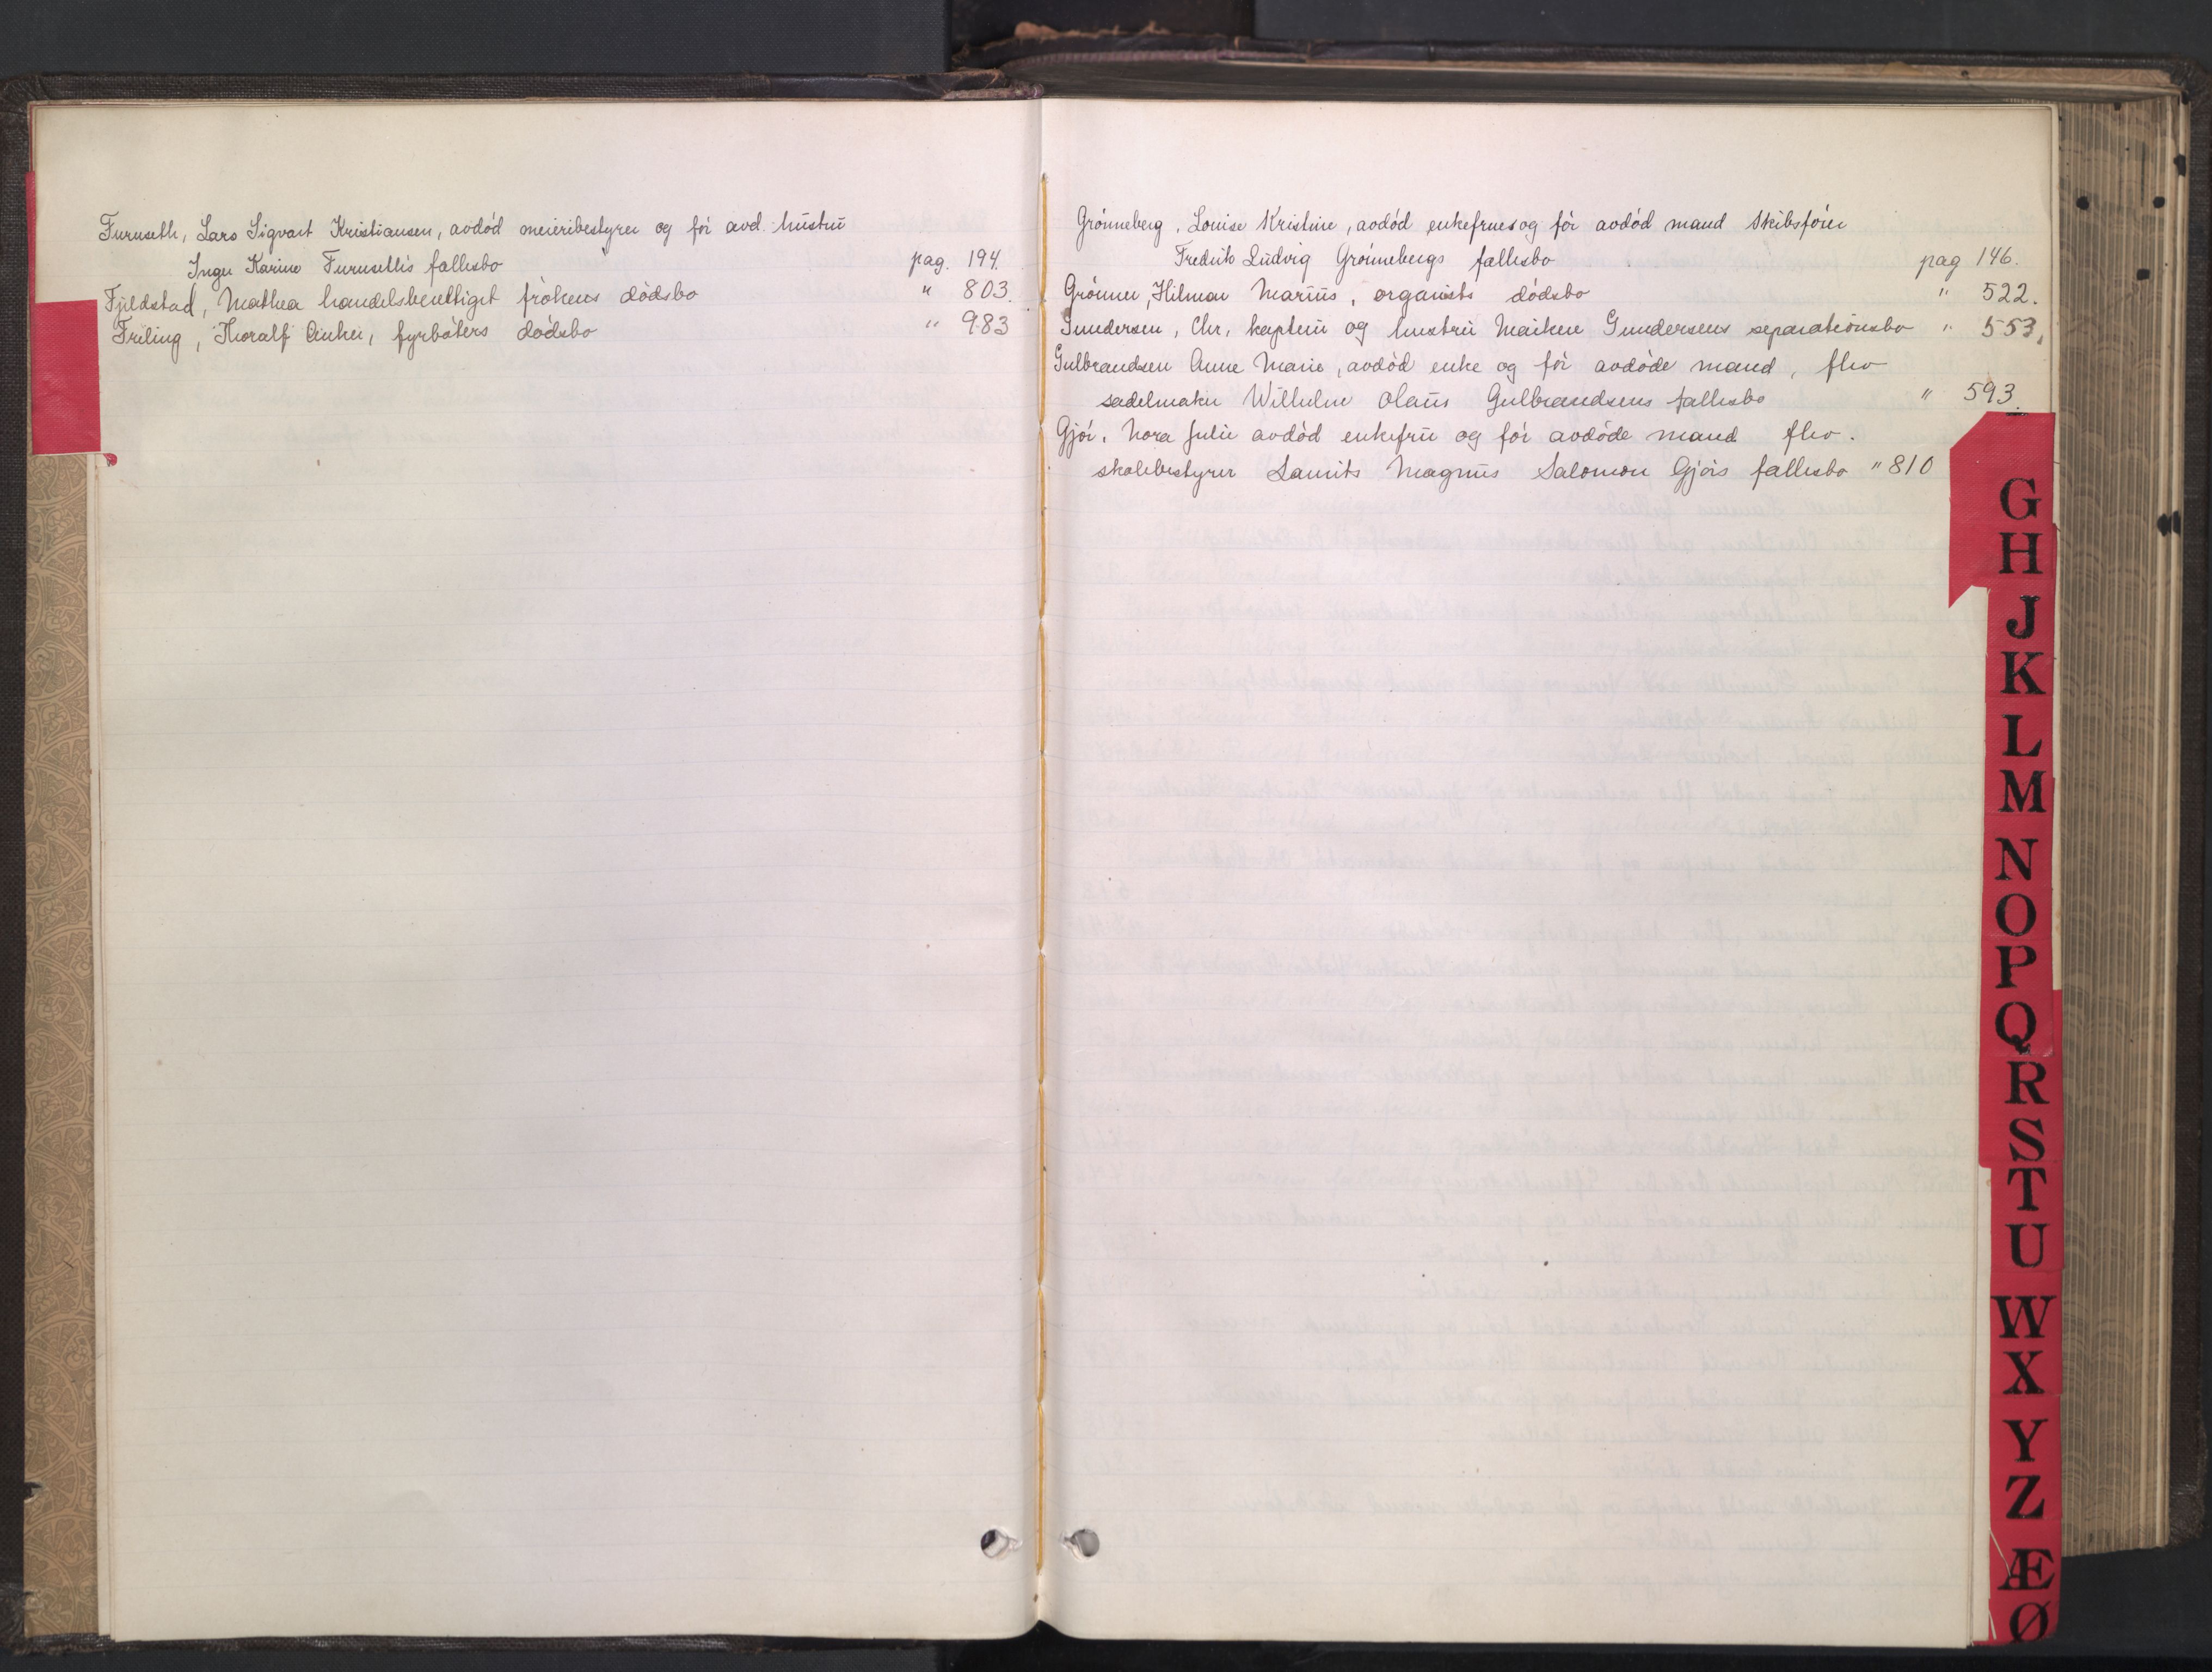 Furuseth, Lars Sigvart Kristiansen, avdöd meieribestyrer og för avd. hustru
Inger Karine Furuseth's fallesbo pag. 194.
Fjeldstad, Mathea handelsberettiget frökens dödsbo " 803.
Freling, Thoralf Anker, fyrböters dödsbo " 983
Grönneberg, Louise Kristine, avdöd enkefrues og för avdöd mand Skibsförer
Fredrik Ludvig Grönnebergs fallesbo pag 146.
Grönner, Hilmar Marius, organists dödsbo " 522.
Gundersen, Chr, kaptein og hustru Maiken Gundersens separationsbo " 553.
Gulbrandsen Anne Marie, avdöd enke og för avdöde mand, fhv
sadelmaker Wilhelm Olaus Gulbrandsens fallesbo " 593.
Gjör, Nora Julie avdöd enkefru og för avdöde mand fhv.
skolebestyrer Laurits Magnus Salomon Gjörs fallesbo " 810
G
H
J
K
L
M
N
O
P
Q
R
S
T
U
W
X
Y
Z
Æ
Ø